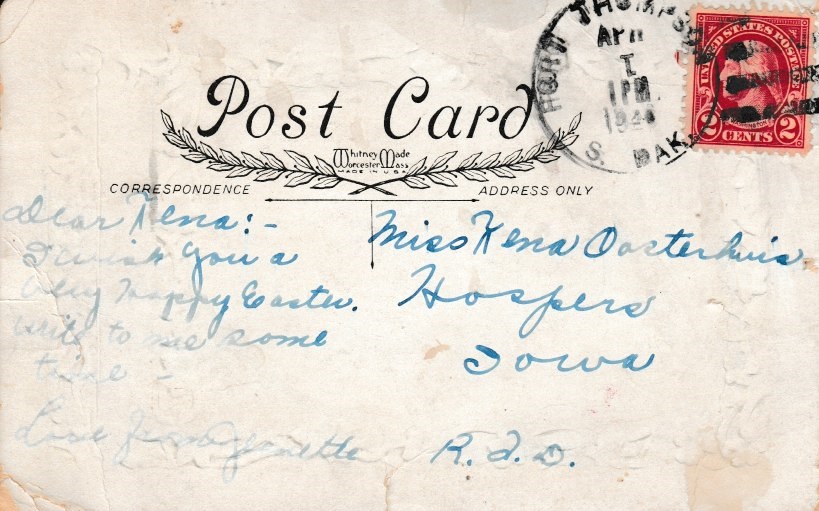 FORT THOMPSON
APR
1
1PM
S. DAK.
UNITED STATES POSTAGE
2 CENTS 2
Post Card
Whitney Made
Worcester Mass
MADE IN U.S.A.
CORRESPONDENCE
ADDRESS ONLY
Dear Rena:-
I wish you a
very Happy Easter.
write to me some
time -
Love from
Miss Rena Oosterhuis
Hospers
Iowa
R. F. D.